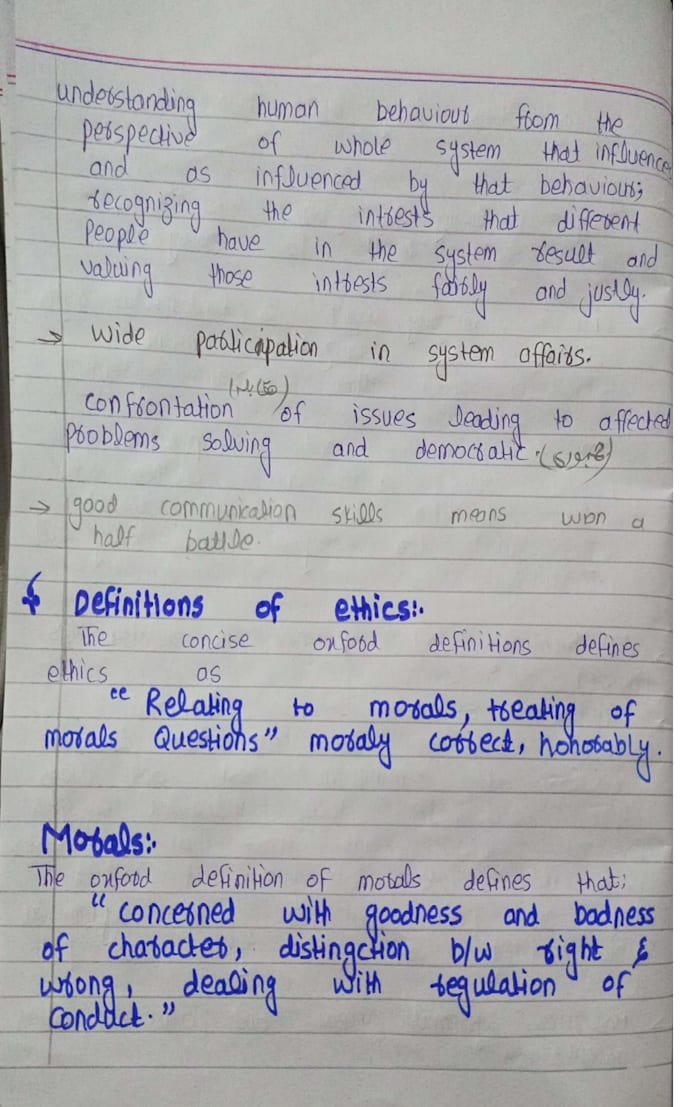 understanding human behaviour from the
perspective of whole system that influence
and as influenced by that behaviour;
recognizing the intrests that different
People have in the system result and
valuing those intrests fairly and justly.
→ wide participation in system affairs.
confrontation of issues leading to affected
problems solving and democratic.
→ good communication skills means won a
half battle.
Definitions of ethics:.
The concise oxford definitions defines
ethics as
"Relating to morals, treating of
morals Questions" moraly correct, honorably.
Morals:.
The oxford definition of morals defines that;
"concerned with goodness and badness
of character, distingction b/w right &
wrong, dealing with regulation of
conduct."